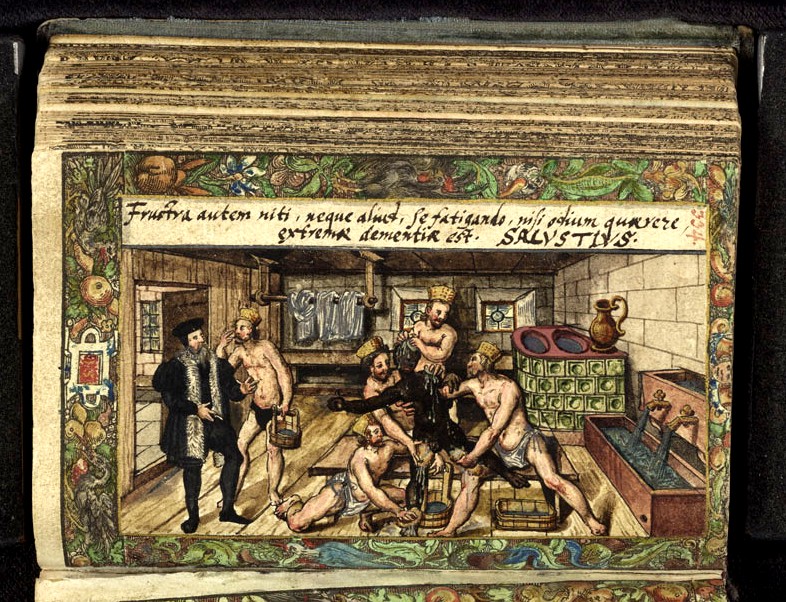 Frustra autem niti, neque aliud, se fatigando, nisi odium quærere,
extremæ dementiæ est. SALVSTIVS.
334